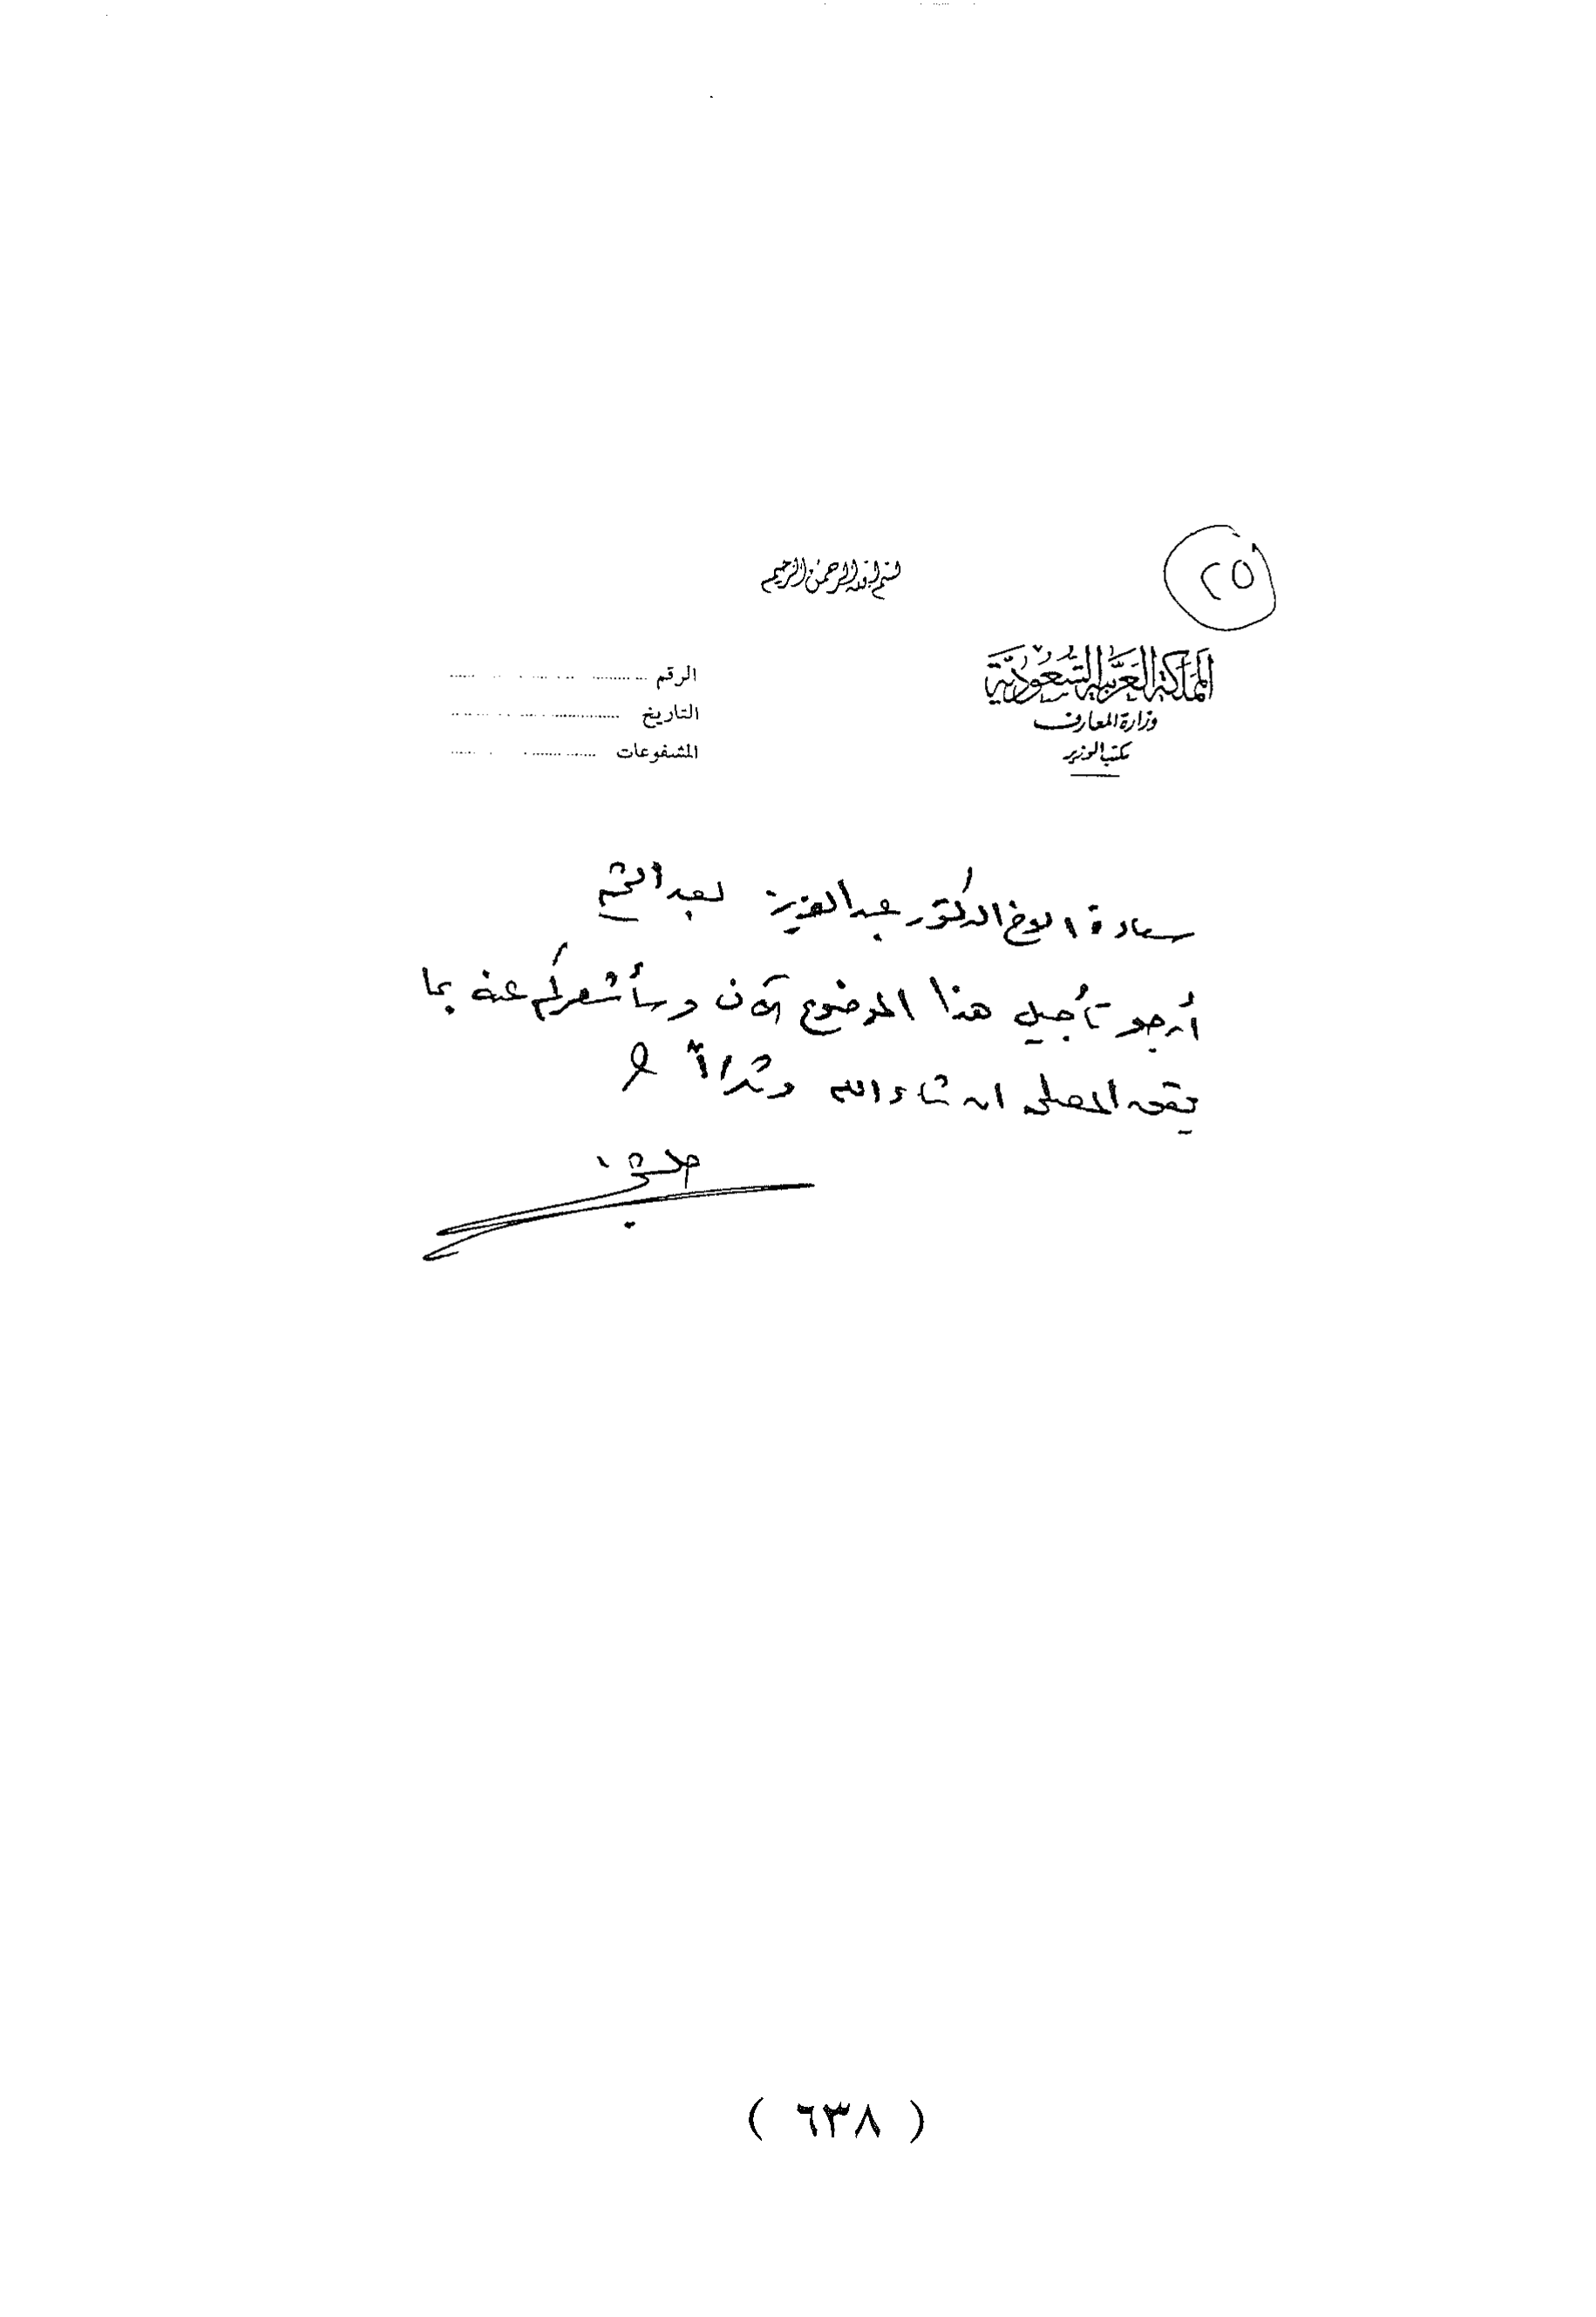 ٢٥
بسم الله الرحمن الرحيم
المملكة العربية السعودية
وزارة المعارف
مكتب الوزير
الرقم
التاريخ
المشفوعات
سعادة الاخ الدكتور عبدالعزيز بعد التحية
أرجو تأجيل هذا الموضوع الآن وسأشعركم عنه بما
يحقق المصلحة ان شاء الله وشكراً
( ٦٣٨ )